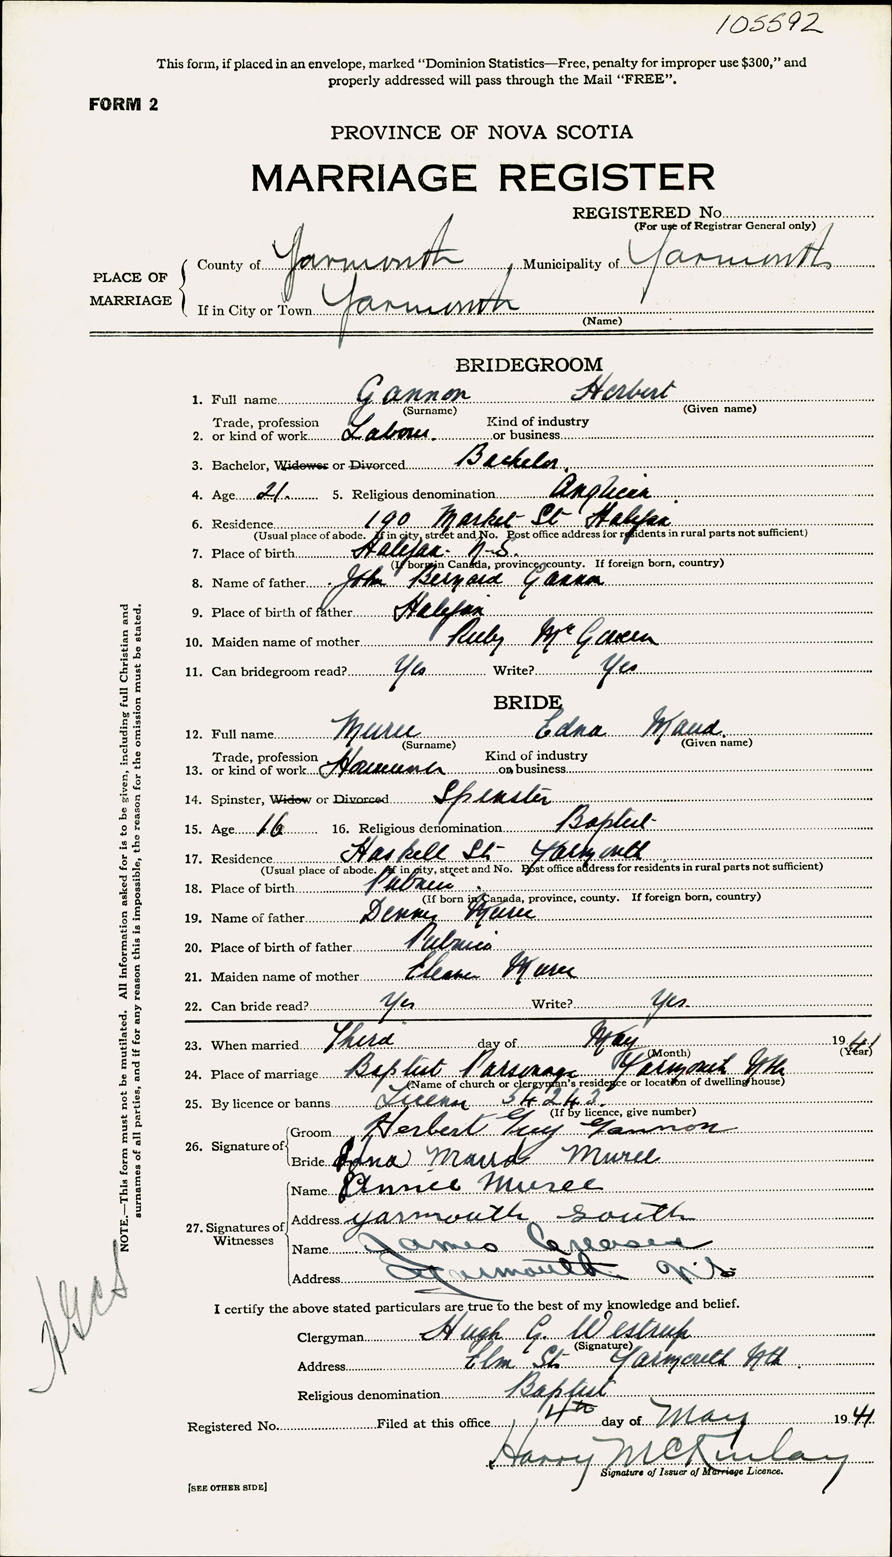 105592
This form, if placed in an envelope, marked “Dominion Statistics—Free, penalty for improper use $300,” and
properly addressed will pass through the Mail “FREE”.
FORM 2
PROVINCE OF NOVA SCOTIA
MARRIAGE REGISTER
REGISTERED No.
(For use of Registrar General only)
PLACE OF MARRIAGE
County of Yarmouth, Municipality of Yarmouth
If in City or Town Yarmouth
(Name)
BRIDEGROOM
1. Full name Gannon Herbert
(Surname) (Given name)
2. Trade, profession or kind of work Labour. Kind of industry or business
3. Bachelor, Widower or Divorced Bachelor.
4. Age 21. 5. Religious denomination Anglican
6. Residence 190 Market St Halifax
(Usual place of abode. If in city, street and No. Post office address for residents in rural parts not sufficient)
7. Place of birth Halifax N.S.
(If born in Canada, province, county. If foreign born, country)
8. Name of father John Bernard Gannon
9. Place of birth of father Halifax
10. Maiden name of mother Ruby
11. Can bridegroom read? Yes Write? Yes
BRIDE
12. Full name Muree Edna Maud.
(Surname) (Given name)
13. Trade, profession or kind of work Kind of industry or business
14. Spinster, Widow or Divorced Spinster
15. Age 16 16. Religious denomination Baptist
17. Residence Haskell St. Yarmouth
(Usual place of abode. If in city, street and No. Post office address for residents in rural parts not sufficient)
18. Place of birth Pubnico.
(If born in Canada, province, county. If foreign born, country)
19. Name of father Denny Muree
20. Place of birth of father Pubnico
21. Maiden name of mother Muree
22. Can bride read? Yes Write? Yes.
23. When married Third day of May 1941
(Month) (Year)
24. Place of marriage Baptist Parsonage Yarmouth Nth
(Name of church or clergyman's residence or location of dwelling house)
25. By licence or banns Licence 54243.
(If by licence, give number)
26. Signature of
Groom Herbert Guy Gannon
Bride Edna Maud Muree
27. Signatures of Witnesses
Name Annie Muree
Address Yarmouth South
Name James
Address Yarmouth N.S.
I certify the above stated particulars are true to the best of my knowledge and belief.
Clergyman Hugh G. Westrup
(Signature)
Address Elm St. Yarmouth Nth.
Religious denomination Baptist
Registered No. Filed at this office 4th day of May 1941.
Harry McKinlay
Signature of Issuer of Marriage Licence.
[SEE OTHER SIDE]
NOTE.—This form must not be mutilated. All Information asked for is to be given, including full Christian and
surnames of all parties, and if for any reason this is impossible, the reason for the omission must be stated.